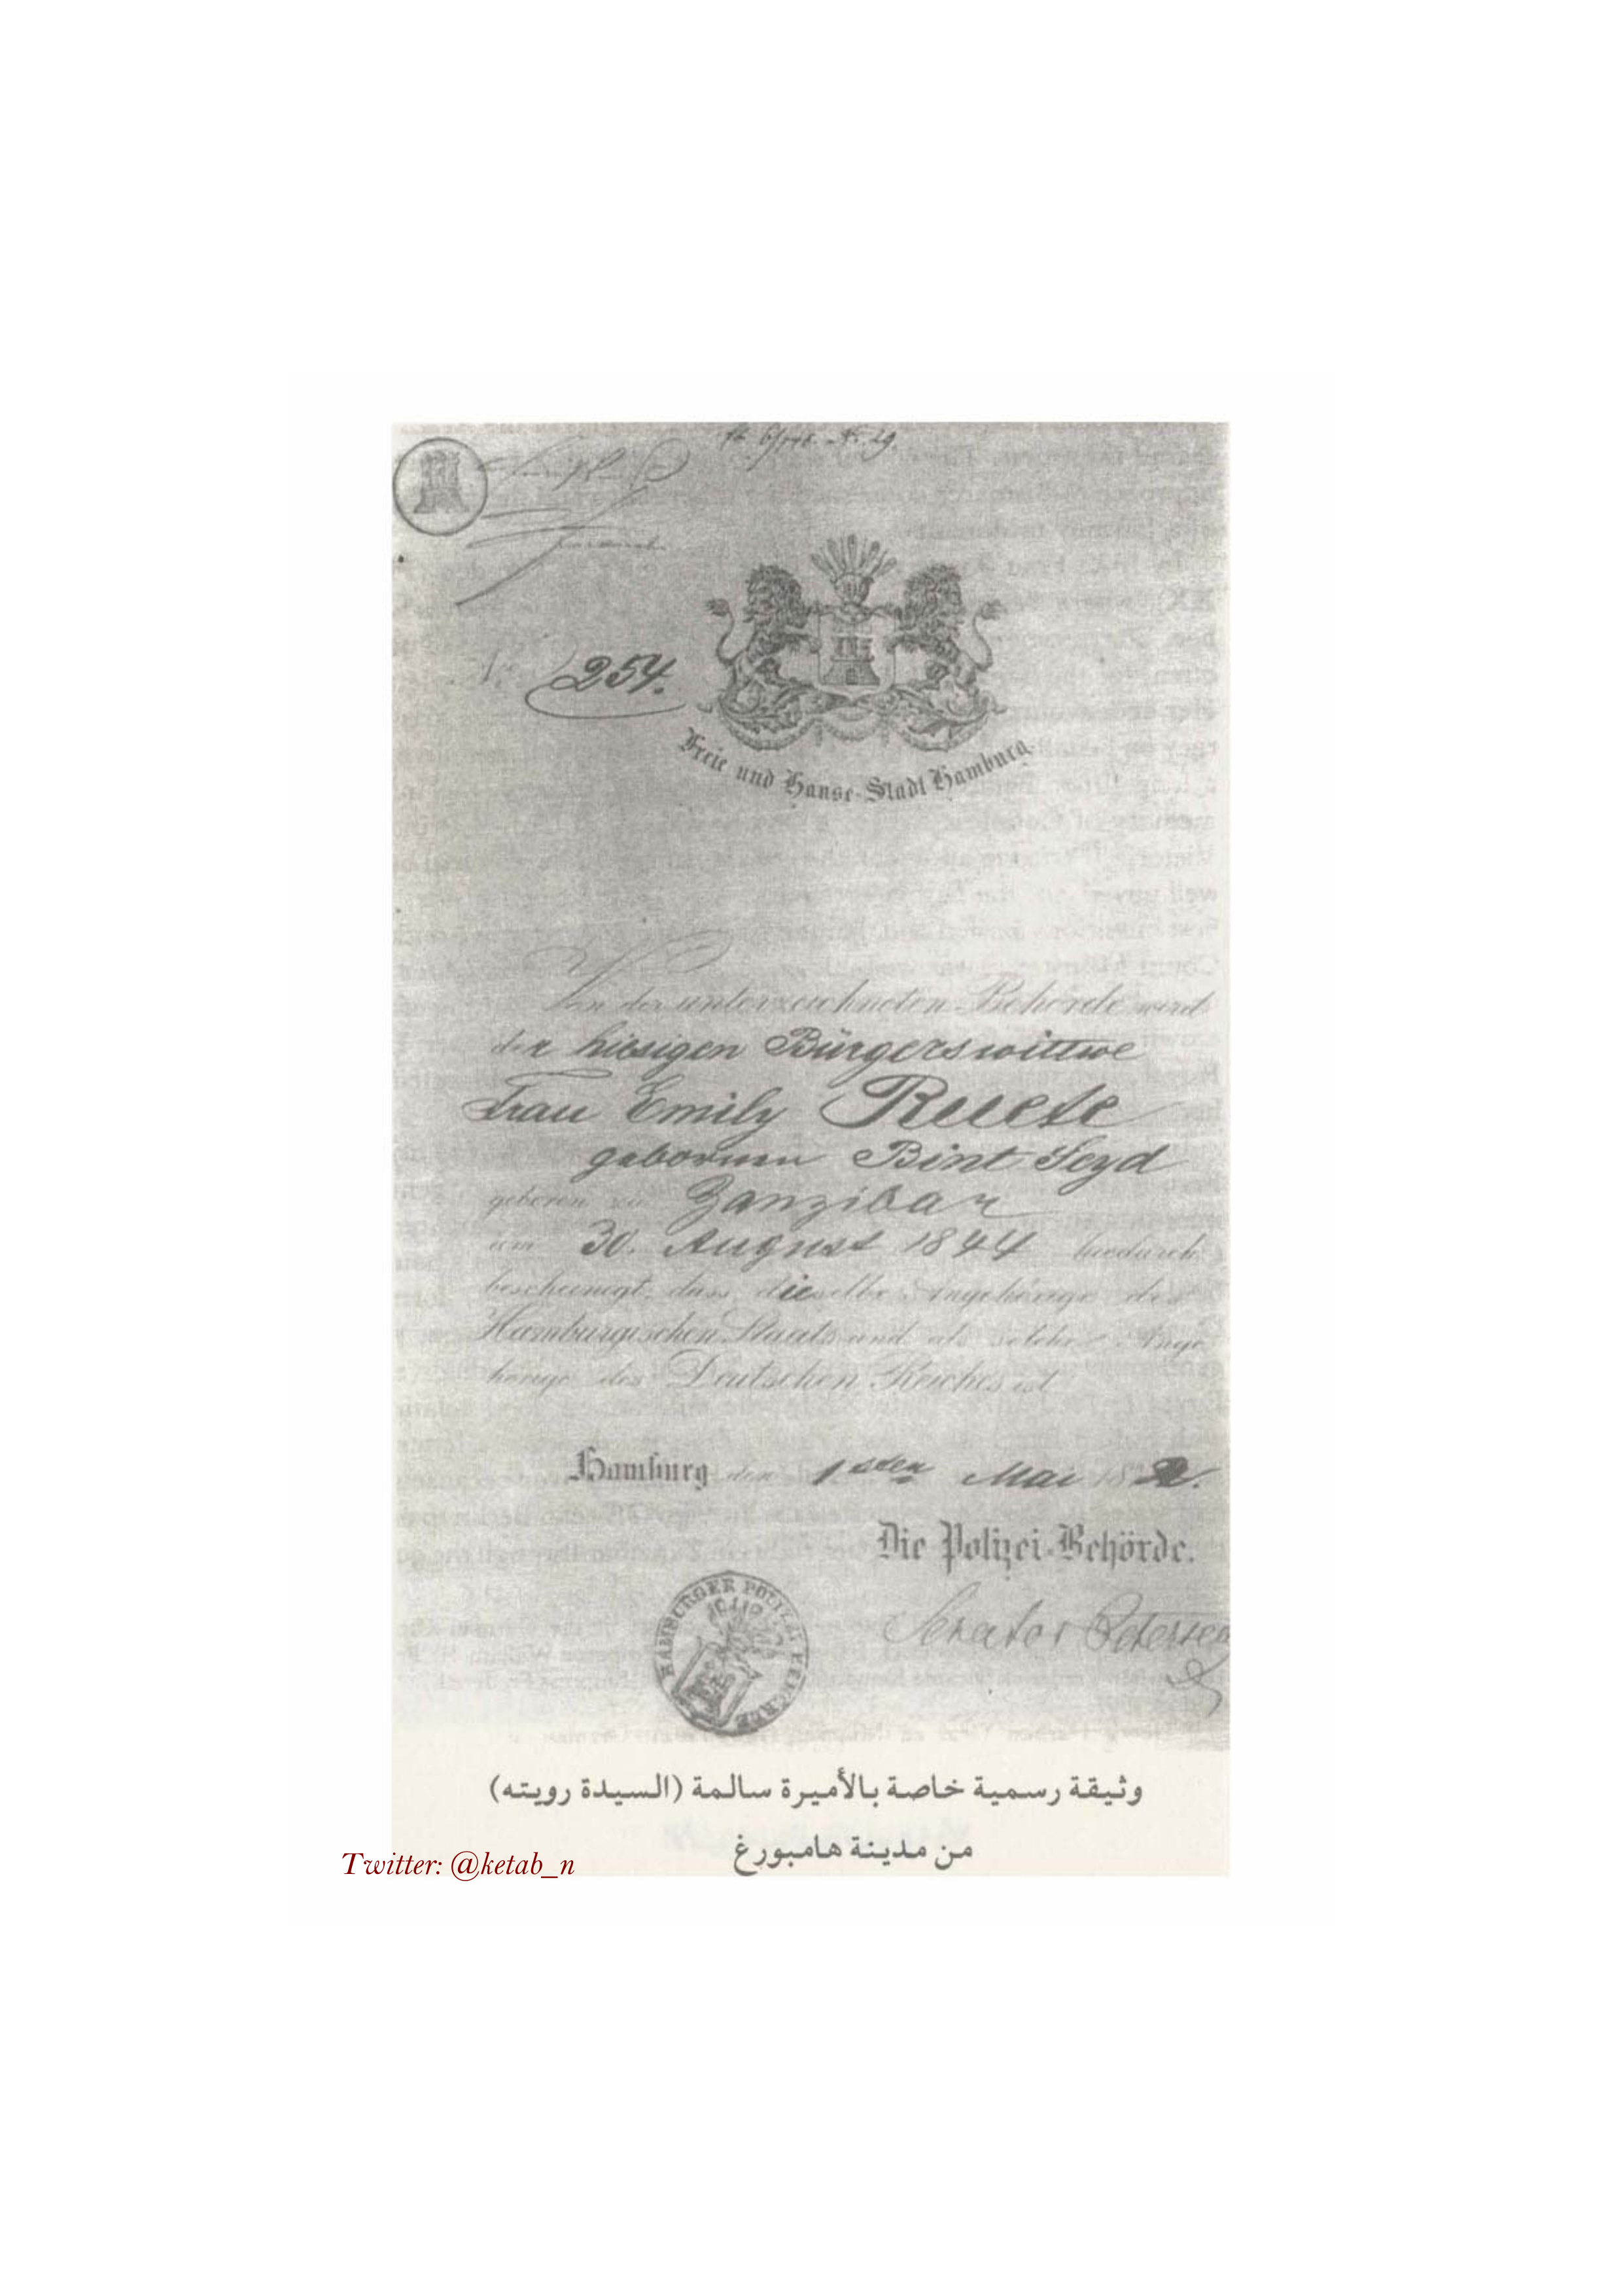 254.
Freie und Hanse-Stadt Hamburg
Von der unterzeichneten Behörde wird
der hiesigen Bürgerswittwe
Frau Emily Ruete
geborenen Bint Seyd
geboren zu Zanzibar
am 30. August 1844 hiedurch
bescheinigt, dass dieselbe Angehörige des
Hamburgischen Staats und als solche Ange
hörige des Deutschen Reiches ist
Hamburg den 1sten Mai 18
Die Polizei-Behörde.
HAMBURGER POLIZEI
Senator Petersen
وثيقة رسمية خاصة بالأميرة سالمة (السيدة رويته)
من مدينة هامبورغ
Twitter: @ketab_n